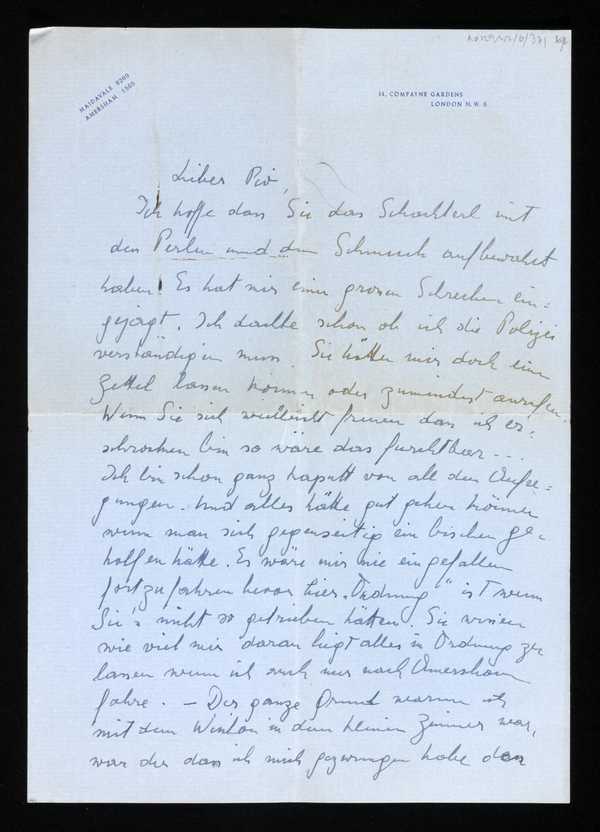 MAIDAVALE 9200
AMERSHAM 1505
14, COMPAYNE GARDENS
LONDON N.W. 6.
Lieber Pio,
Ich hoffe dass Sie das Schachterl mit
den Perlen und dem Schmuck aufbewahrt
haben! Es hat mir einen grossen Schrecken ein=
gejagt. Ich dachte schon ob ich die Polizei
verständigen muss. Sie hätten mir doch einen
Zettel lassen können oder zumindest anrufen.
Wenn Sie sich vielleicht freuen dass ich er=
schrocken bin so wäre das furchtbar - - .
Ich bin schon ganz kaputt von all den Aufre=
gungen. Und alles hätte gut gehen können
wenn man sich gegenseitig ein bischen ge=
holfen hätte. Es wäre mir nie eingefallen
fortzufahren bevor hier „Ordnung" ist wenn
Sie's nicht so getrieben hätten. Sie wissen
wie viel mir daran liegt alles in Ordnung zu
lassen wenn ich auch nur nach Amersham
fahre. - Der ganze Grund warum ich
mit dem in dem kleinen Zimmer war,
war der dass ich mich gezwungen habe den